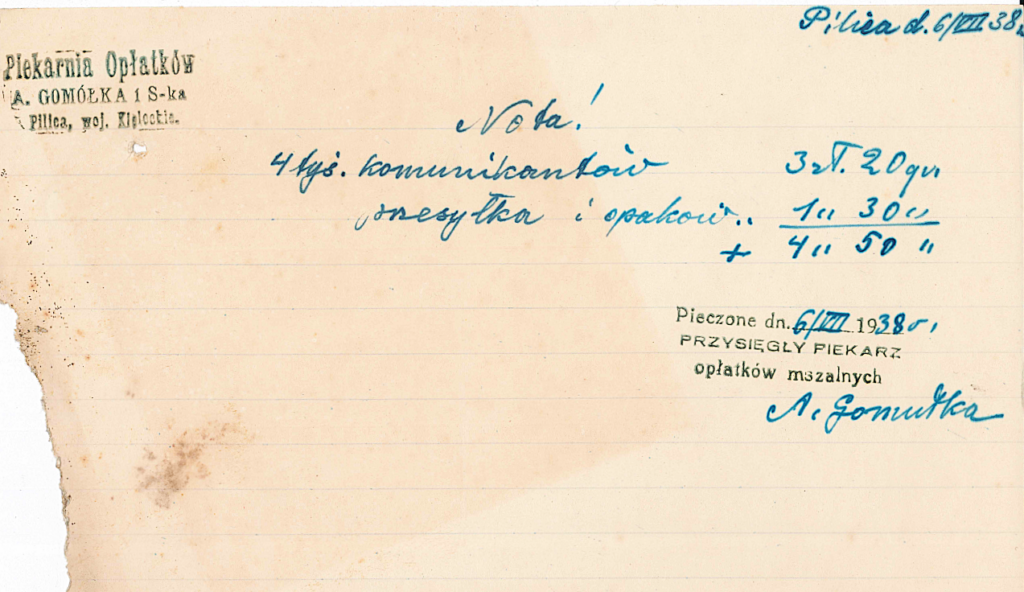 Pilica d. 6/VII 38r.
Piekarnia Opłatków
A. GOMÓŁKA i S-ka
Pilica, woj. Kieleckie.
Nota!
4 tyś. komunikantów 3 zł. 20 gr.
przesyłka i opakow.. 1 " 30 "
+ 4 " 50 "
Pieczone dn. 6/VII 1938 r.
PRZYSIĘGŁY PIEKARZ
opłatków mszalnych
A. Gomułka